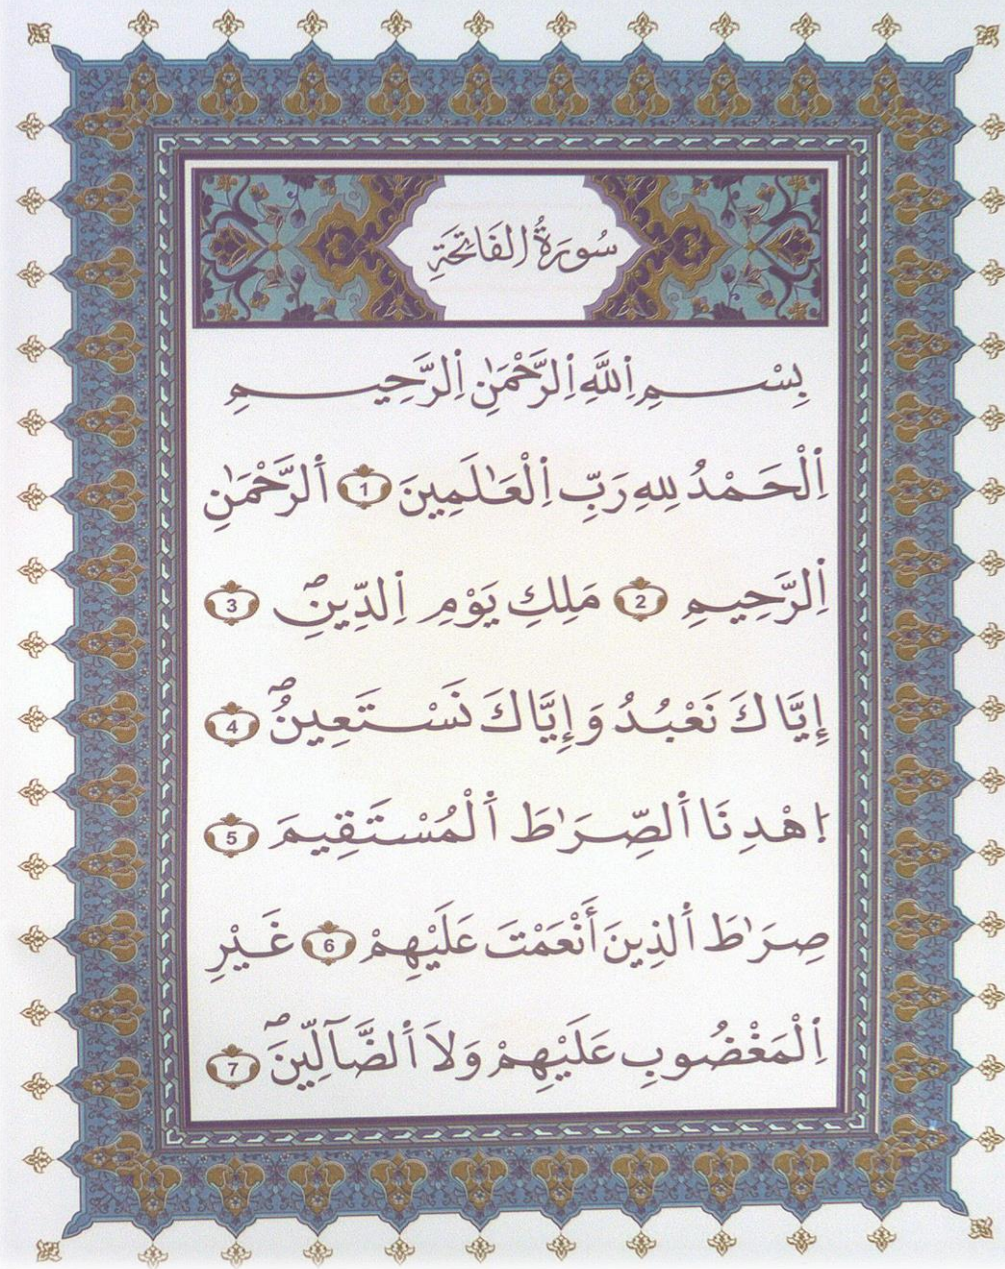 سُورَةُ الفَاتِحَةِ
بِسْمِ اِ۬للَّهِ اِ۬لرَّحْمَٰنِ اِ۬لرَّحِيمِ
اِ۬لْحَمْدُ لِلهِ رَبِّ اِ۬لْعَٰلَمِينَ 1 اَ۬لرَّحْمَٰنِ
اِ۬لرَّحِيمِ 2 مَلِكِ يَوْمِ اِ۬لدِّينِۖ 3
إِيَّاكَ نَعْبُدُ وَإِيَّاكَ نَسْتَعِينُۖ 4
اِ۪هْدِنَا اَ۬لصِّرَٰطَ اَ۬لْمُسْتَقِيمَ 5
صِرَٰطَ اَ۬لذِينَ أَنْعَمْتَ عَلَيْهِمْ 6 غَيْرِ
اِ۬لْمَغْضُوبِ عَلَيْهِمْ وَلَا اَ۬لضَّآلِّينَۖ 7